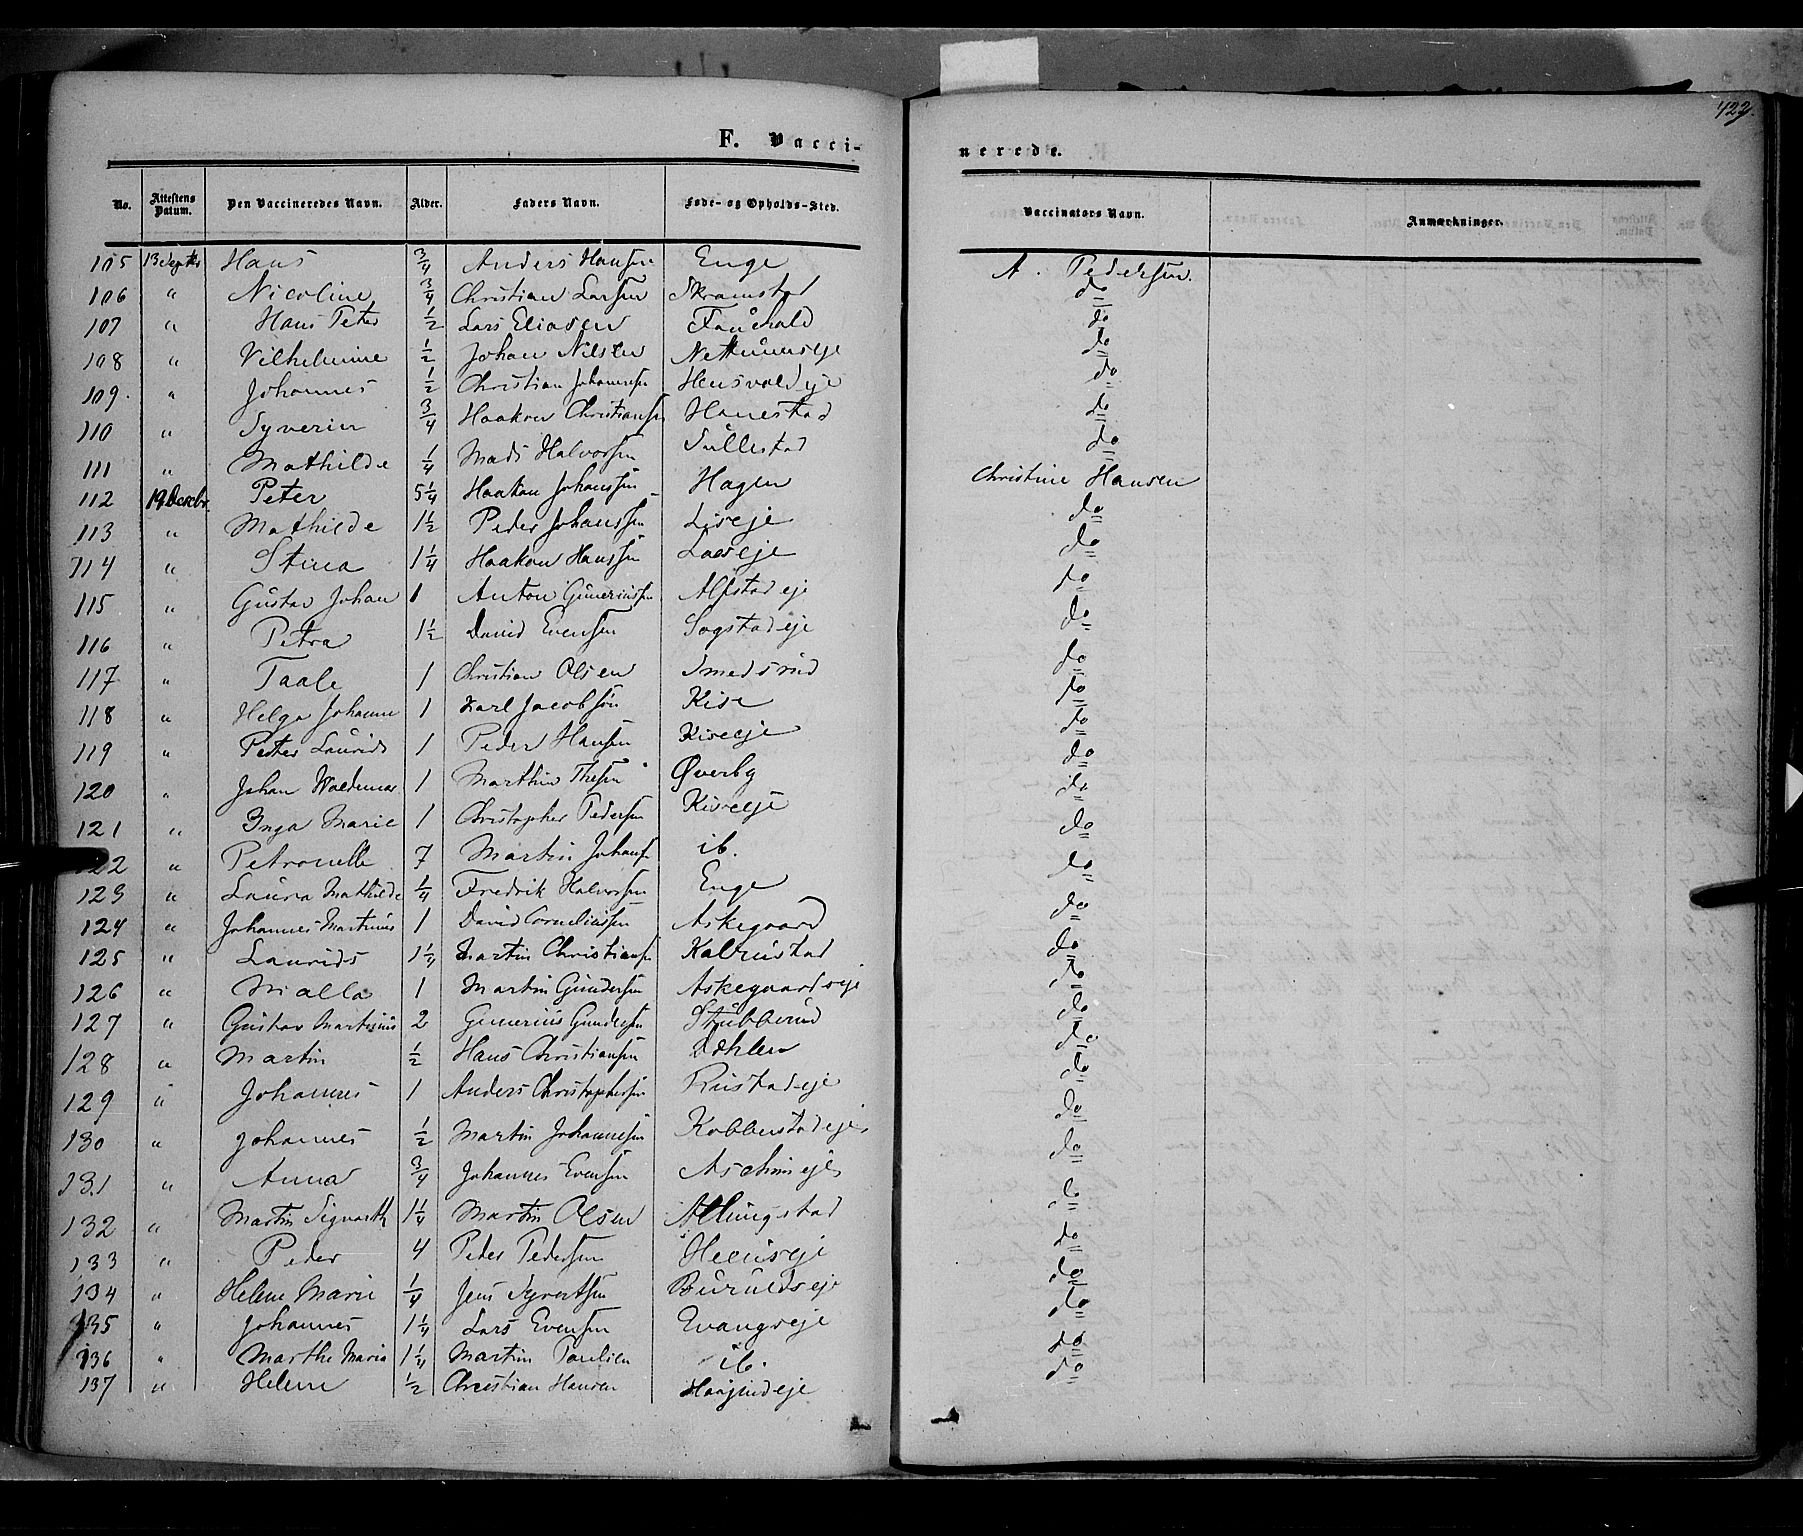 422.
F. Vacci-
nerede.
No. Attestens Datum. Den Vaccineredes Navn. Alder. Faders Navn. Føde- og Opholds-Sted. Vaccinators Navn. Anmærkninger.
105 13 Septbr Hans 3/4 Anders Hansen Enge A. Pedersen.
106 " Nicoline 3/4 Christian Larsen Skramstad do
107 " Hans Peter 1/2 Lars Eliasen Fauchald do
108 " Vilhelmine 1/2 Johan Nilsen do
109. " Johannes 1/2 Christian Johannesen Hensvoldeje do
110 " Syverin 3/4 Haakon Christiansen Hanestad do
111 " Mathilde 1/4 Mads Halvorsen Sullestad do
112 19 Decebr. Peter 5 1/4 Haakon Johanssen Hagen Christine Hansen
113 " Mathilde 1 1/2 Peder Johanssen Liseje do
114 " Stina 1 1/4 Haakon Hanssen do
115 " Gustav Johan 1 Anton Guneriussen Alfstadeje do
116 " Petra 1 1/2 David Evensen Sogstadeje do
117 " Taale 1 Christian Olsen Smedsrud do
118 " Helga Johanne 1 Karl Jacobsøn Kise do
119 " Peter Laurids 1 Peder Hansen Kiseeje do
120 " Johan Waldemar 1 Marthin Thesen Øverby do
121 " Inga Marie 1 Christopher Pedersen Kiseeje do
122 " Petronelle 7 Martin Johans ib. do
123 " Laura Mathilde 1/4 Fredrik Halvorsen Enge do
124 " Johannes Martinus 1 David Corneliussen Askegaard do
125 " Laurids 1 1/4 Martin Christians Kalrustad do
126 " Malla 1 Martin Gundersen Askegaardseje do
127 " Gustav Martinius 2 Gunerius Gundersen Stubberud do
128 " Martin 1/2 Hans Christiansen Dæhlen do
129 " Johannes 1 Anders Christophersen Rustadeje do
130 " Johannes 1/2 Martin Johannesen Kobberstadeje do
131 " Anna 3/4 Johannes Evensen Aschimeje do
132 " Martin Sigvarth 1 1/4 Martin Olsen Alhungstad do
133 " Peder 4 Peder Pedersen do
134 " Helene Marie 1/4 Jens Syvertsen Buruldseje do
135 " Johannes 1 1/4 Lars Evensen Evangseje do
136 " Marthe Maria 1 1/4 Martin Paulsen ib. do
137 " Helene 1/2 Christian Hansen do